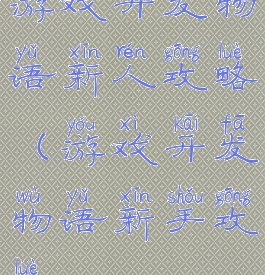 游戏开发物
yǔ xīn rén gōng luè
语新人攻略
yóu xì kāi fā
(游戏开发
wù yǔ xīn shǒu gōng
物语新手攻
luè